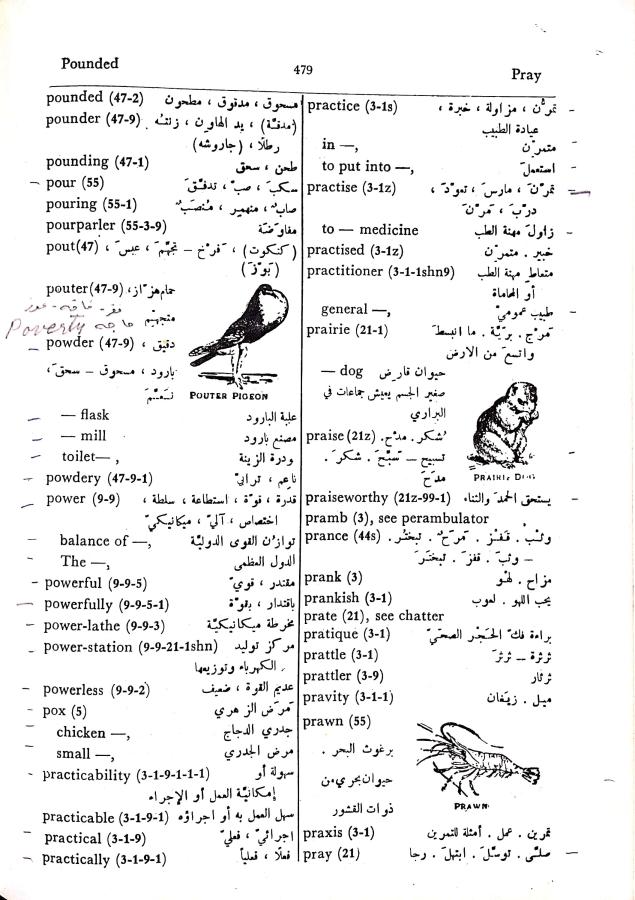 Pounded
479
Pray
pounded (47-2) مسحوق ، مدقوق ، مطحون
pounder (47-9) (مدقّة) ، يد الهاون ، زنتـه
رطلا ، (جاروشه)
pounding (47-1) طحن ، سحق
pour (55) سكبَ ، صبّ ، تدفّقَ
pouring (55-1) صابّ ، منهمر ، مُنصَبّ
pourparler (55-3-9) مفاوَضة
pout(47) (كنكوت) ، فَرْخ – تجهّمَ ، عبسَ ،
(بَوّزَ)
pouter(47-9) حمام هزّاز ،
متجهّم
فقر - فاقه - عوز
Poverty حاجه
powder (47-9) دقيق ،
بارود ، مسحوق – سحقَ ،
نَعَّمَ
POUTER PIGEON
— flask علبة البارود
— mill مصنع بارود
toilet— , ودرة الزينة
powdery (47-9-1) ناعم ، ترابيّ
power (9-9) قدرة ، قوّة ، استطاعة ، سلطة ،
اختصاص ، آليّ ، ميكانيكيّ
balance of —, توازُن القوى الدوليّة
The —, الدول العظمى
powerful (9-9-5) مقتدر ، قويّ
powerfully (9-9-5-1) باقتدار ، بقوّة
power-lathe (9-9-3) مخرطة ميكانيكيّة
power-station (9-9-21-1shn) مركز توليد
الكهرباء وتوزيعها
powerless (9-9-2) عديم القوة ، ضعيف
pox (5) مَرَض الزهري
chicken —, جدري الدجاج
small —, مرض الجدري
practicability (3-1-9-1-1-1) سهولة أو
إمكانيّة العمل أو الإجراء
practicable (3-1-9-1) سهل العمل به أو اجراؤه
practical (3-1-9) اجرائيّ ، فعليّ
practically (3-1-9-1) فعلًا ، فعلياً
practice (3-1s) تمرُّن ، مزاولة ، خبرة ،
عيادة الطبيب
in —, متمرّن
to put into —, استعملَ
practise (3-1z) تمرّنَ ، مارسَ ، تعوّدَ ،
درّبَ ، مَرّنَ
to — medicine زاولَ مهنة الطب
practised (3-1z) خبير . متمرّن
practitioner (3-1-1shn9) متعاطٍ مهنة الطب
أو المحاماة
general —, طبيب عموميّ
prairie (21-1) مَرْج . بريّة . ما انبسطَ
واتسعَ من الارض
— dog حيوان قارض
صغير الجسم يعيش جماعات في
البراري
praise (21z) شُكر . مدْح .
تسبيح – سَبّحَ . شكرَ .
مدَحَ
PRAIRIE DOG
praiseworthy (21z-99-1) يستحق الحمدَ والثناء
pramb (3), see perambulator
prance (44s) وثْب . قَفْز . مَرَحٌ . تبختُر .
– وثبَ . قفزَ . تبختَرَ
prank (3) مزاح . لهْو
prankish (3-1) يحب اللهو . لعوب
prate (21), see chatter
pratique (3-1) براءة فكّ الحَجْر الصحيّ
prattle (3-1) ثرثرة – ثرثرَ
prattler (3-9) ثرثار
pravity (3-1-1) ميل . زيَغان
prawn (55)
برغوث البحر .
حيوان بحري من
ذوات القشور
PRAWN
praxis (3-1) تمرين . عمل . أمثلة للتمرين
pray (21) صلّى . توسّلَ . ابتهلَ . رجا